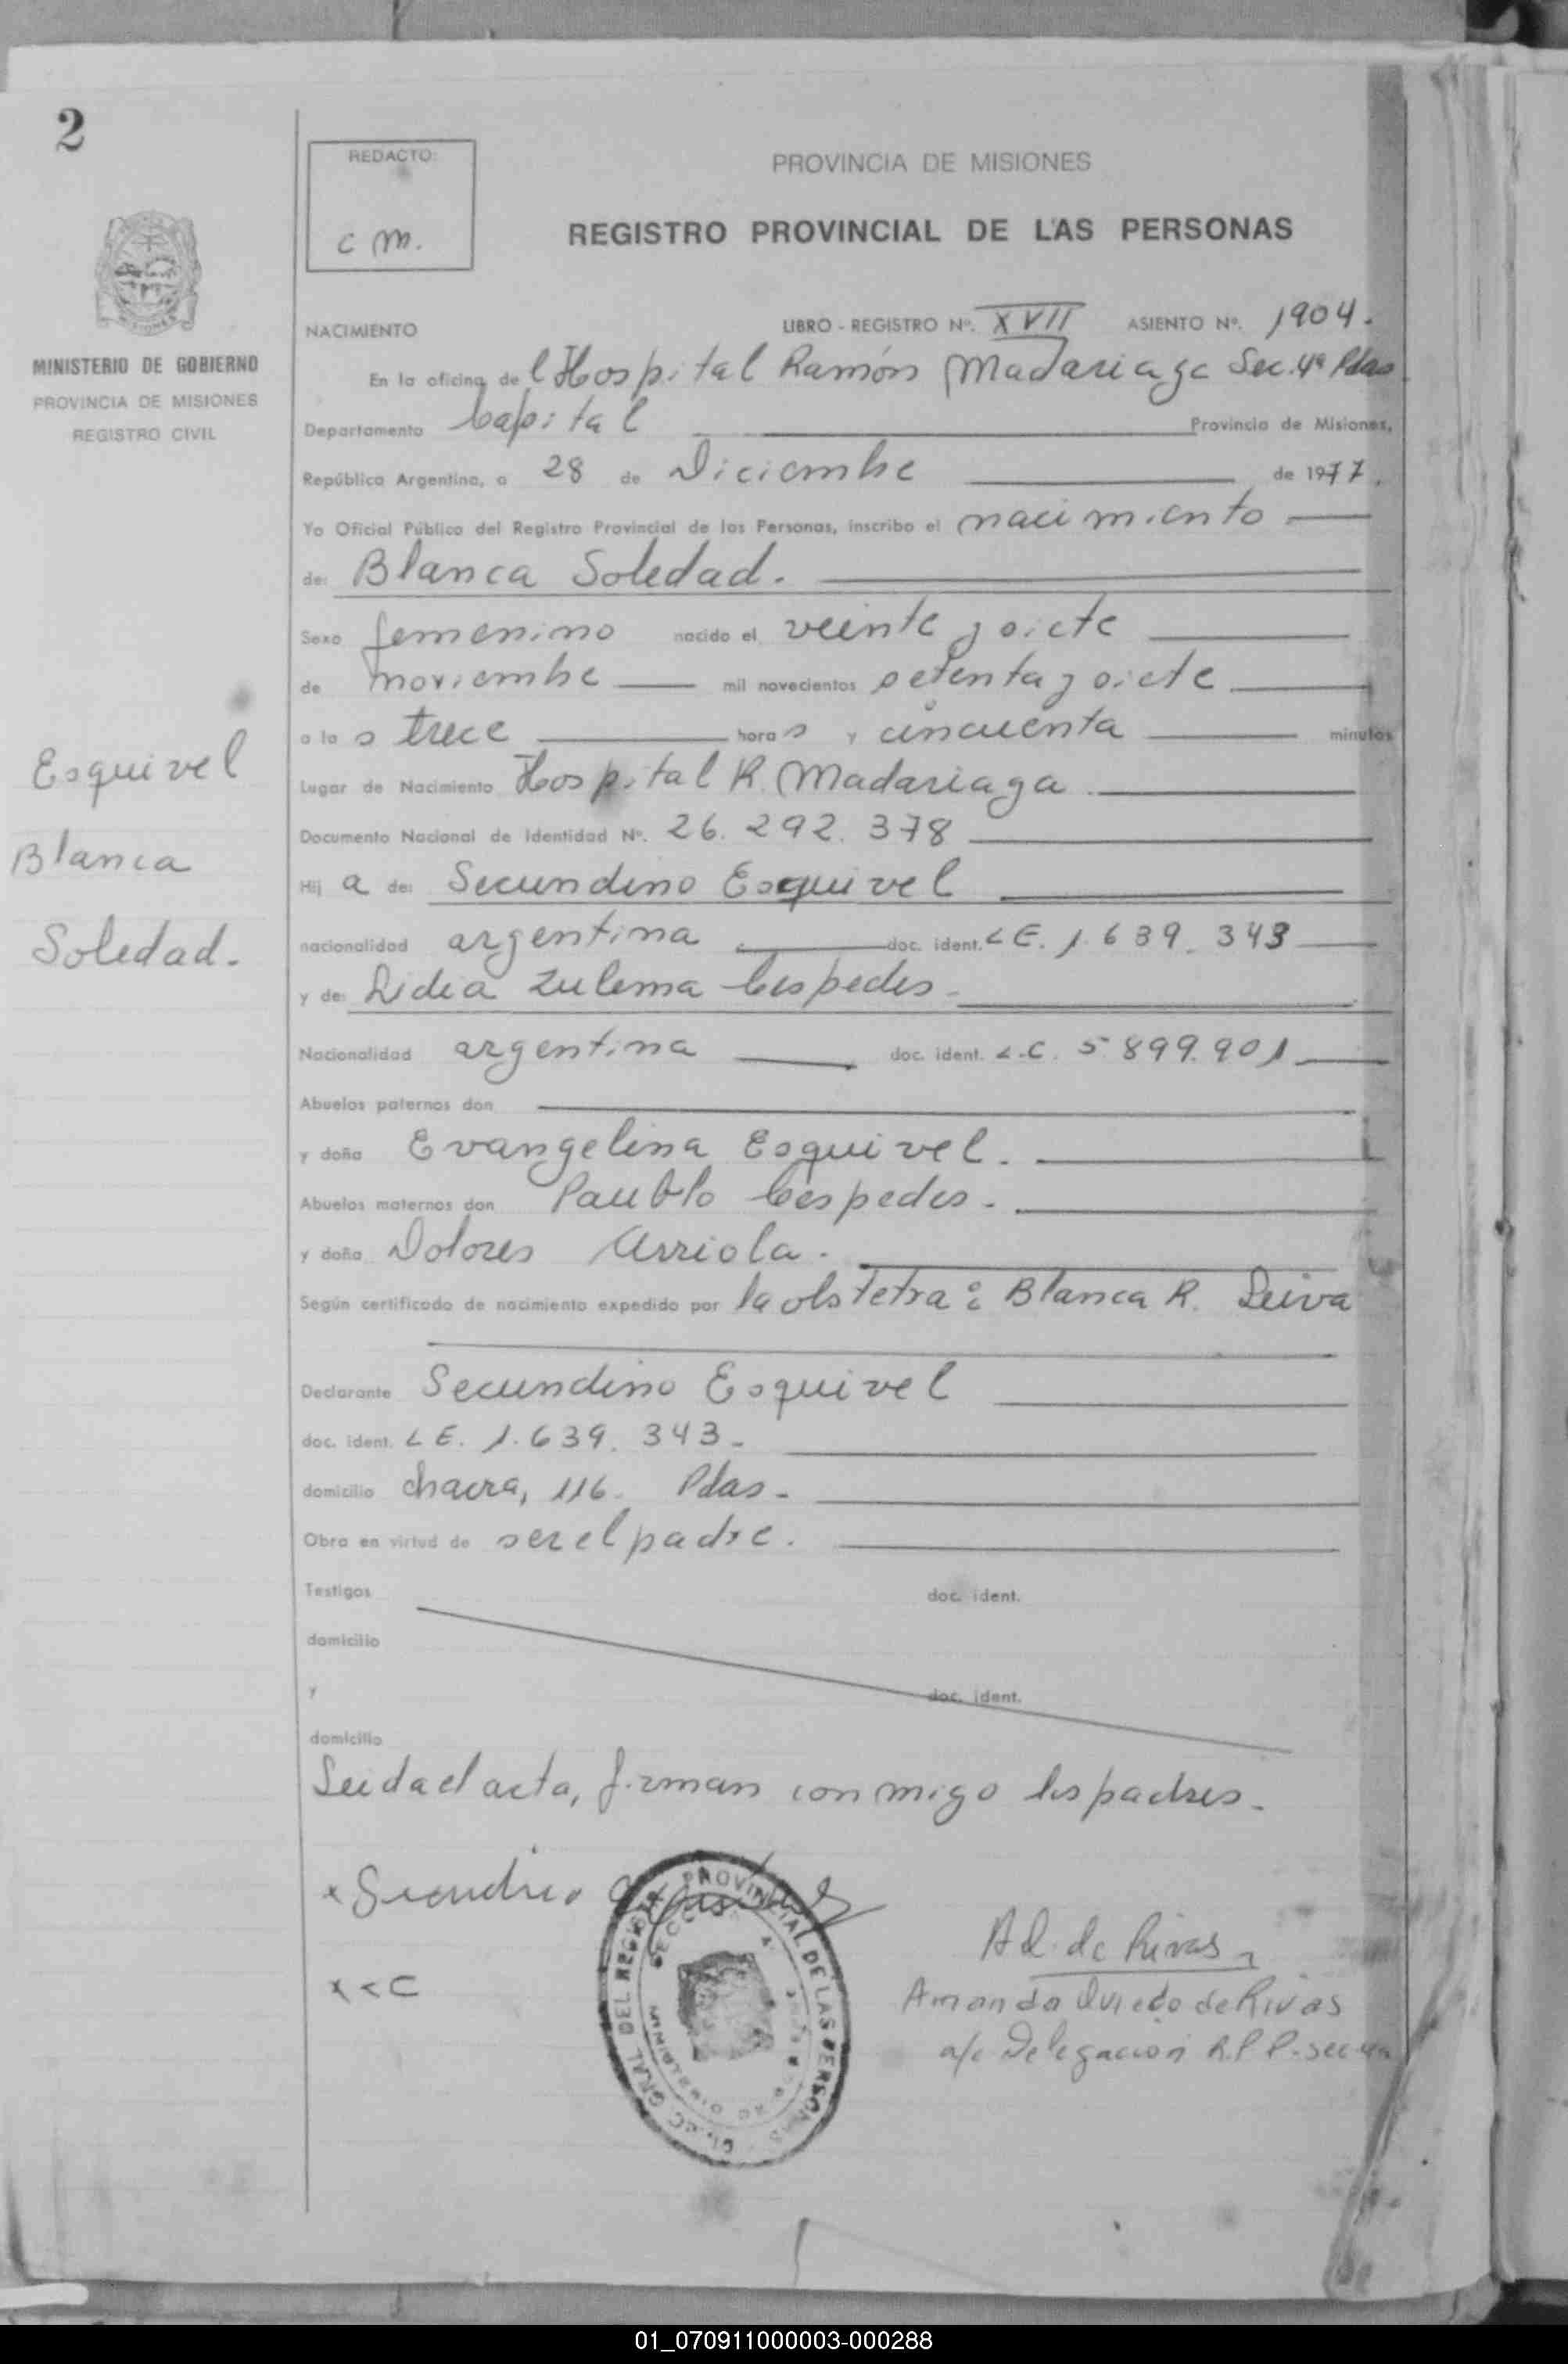 2
REDACTO:
c m.
PROVINCIA DE MISIONES
REGISTRO PROVINCIAL DE LAS PERSONAS
MINISTERIO DE GOBIERNO
PROVINCIA DE MISIONES
REGISTRO CIVIL
NACIMIENTO LIBRO - REGISTRO Nº. XVII ASIENTO Nº. 1904.
En la oficina de l Hospital Ramón Madariaga Sec. 4ª Pdas
Departamento Capital Provincia de Misiones,
República Argentina, a 28 de Diciembre de 1977.
Yo Oficial Público del Registro Provincial de las Personas, inscribo el nacimiento
de: Blanca Soledad.
Sexo femenino nacido el veinte y siete
de noviembre mil novecientos setenta y siete
a la s trece hora s y cincuenta minutos
Lugar de Nacimiento Hospital R. Madariaga
Documento Nacional de Identidad Nº. 26.292.378
Hij a de: Secundino Esquivel
nacionalidad argentina doc. ident. L E. 1.639.343
y de: Lidia Zulema Cespedes
Nacionalidad argentina doc. ident. L.C. 5.899.901
Abuelos paternos don
y doña Evangelina Esquivel.
Abuelos maternos don Paublo Céspedes.
y doña Dolores Arriola.
Según certificado de nacimiento expedido por la obstetra: Blanca R. Leiva
Declarante Secundino Esquivel
doc. ident. L E. 1.639.343.
domicilio chacra, 116. Pdas.
Obra en virtud de ser el padre.
Testigos doc. ident.
domicilio
y doc. ident.
domicilio
Leida el acta, firman conmigo los padres.
Esquivel
Blanca
Soledad.
x Secundino Esquivel
x < C
DIREC. GRAL DEL REGISTRO PROVINCIAL DE LAS PERSONAS
SECCION 4ª
Ad. de Rivas
Amanda Oviedo de Rivas
a/c Delegación R.P.P. Sec 4ª
01_070911000003-000288